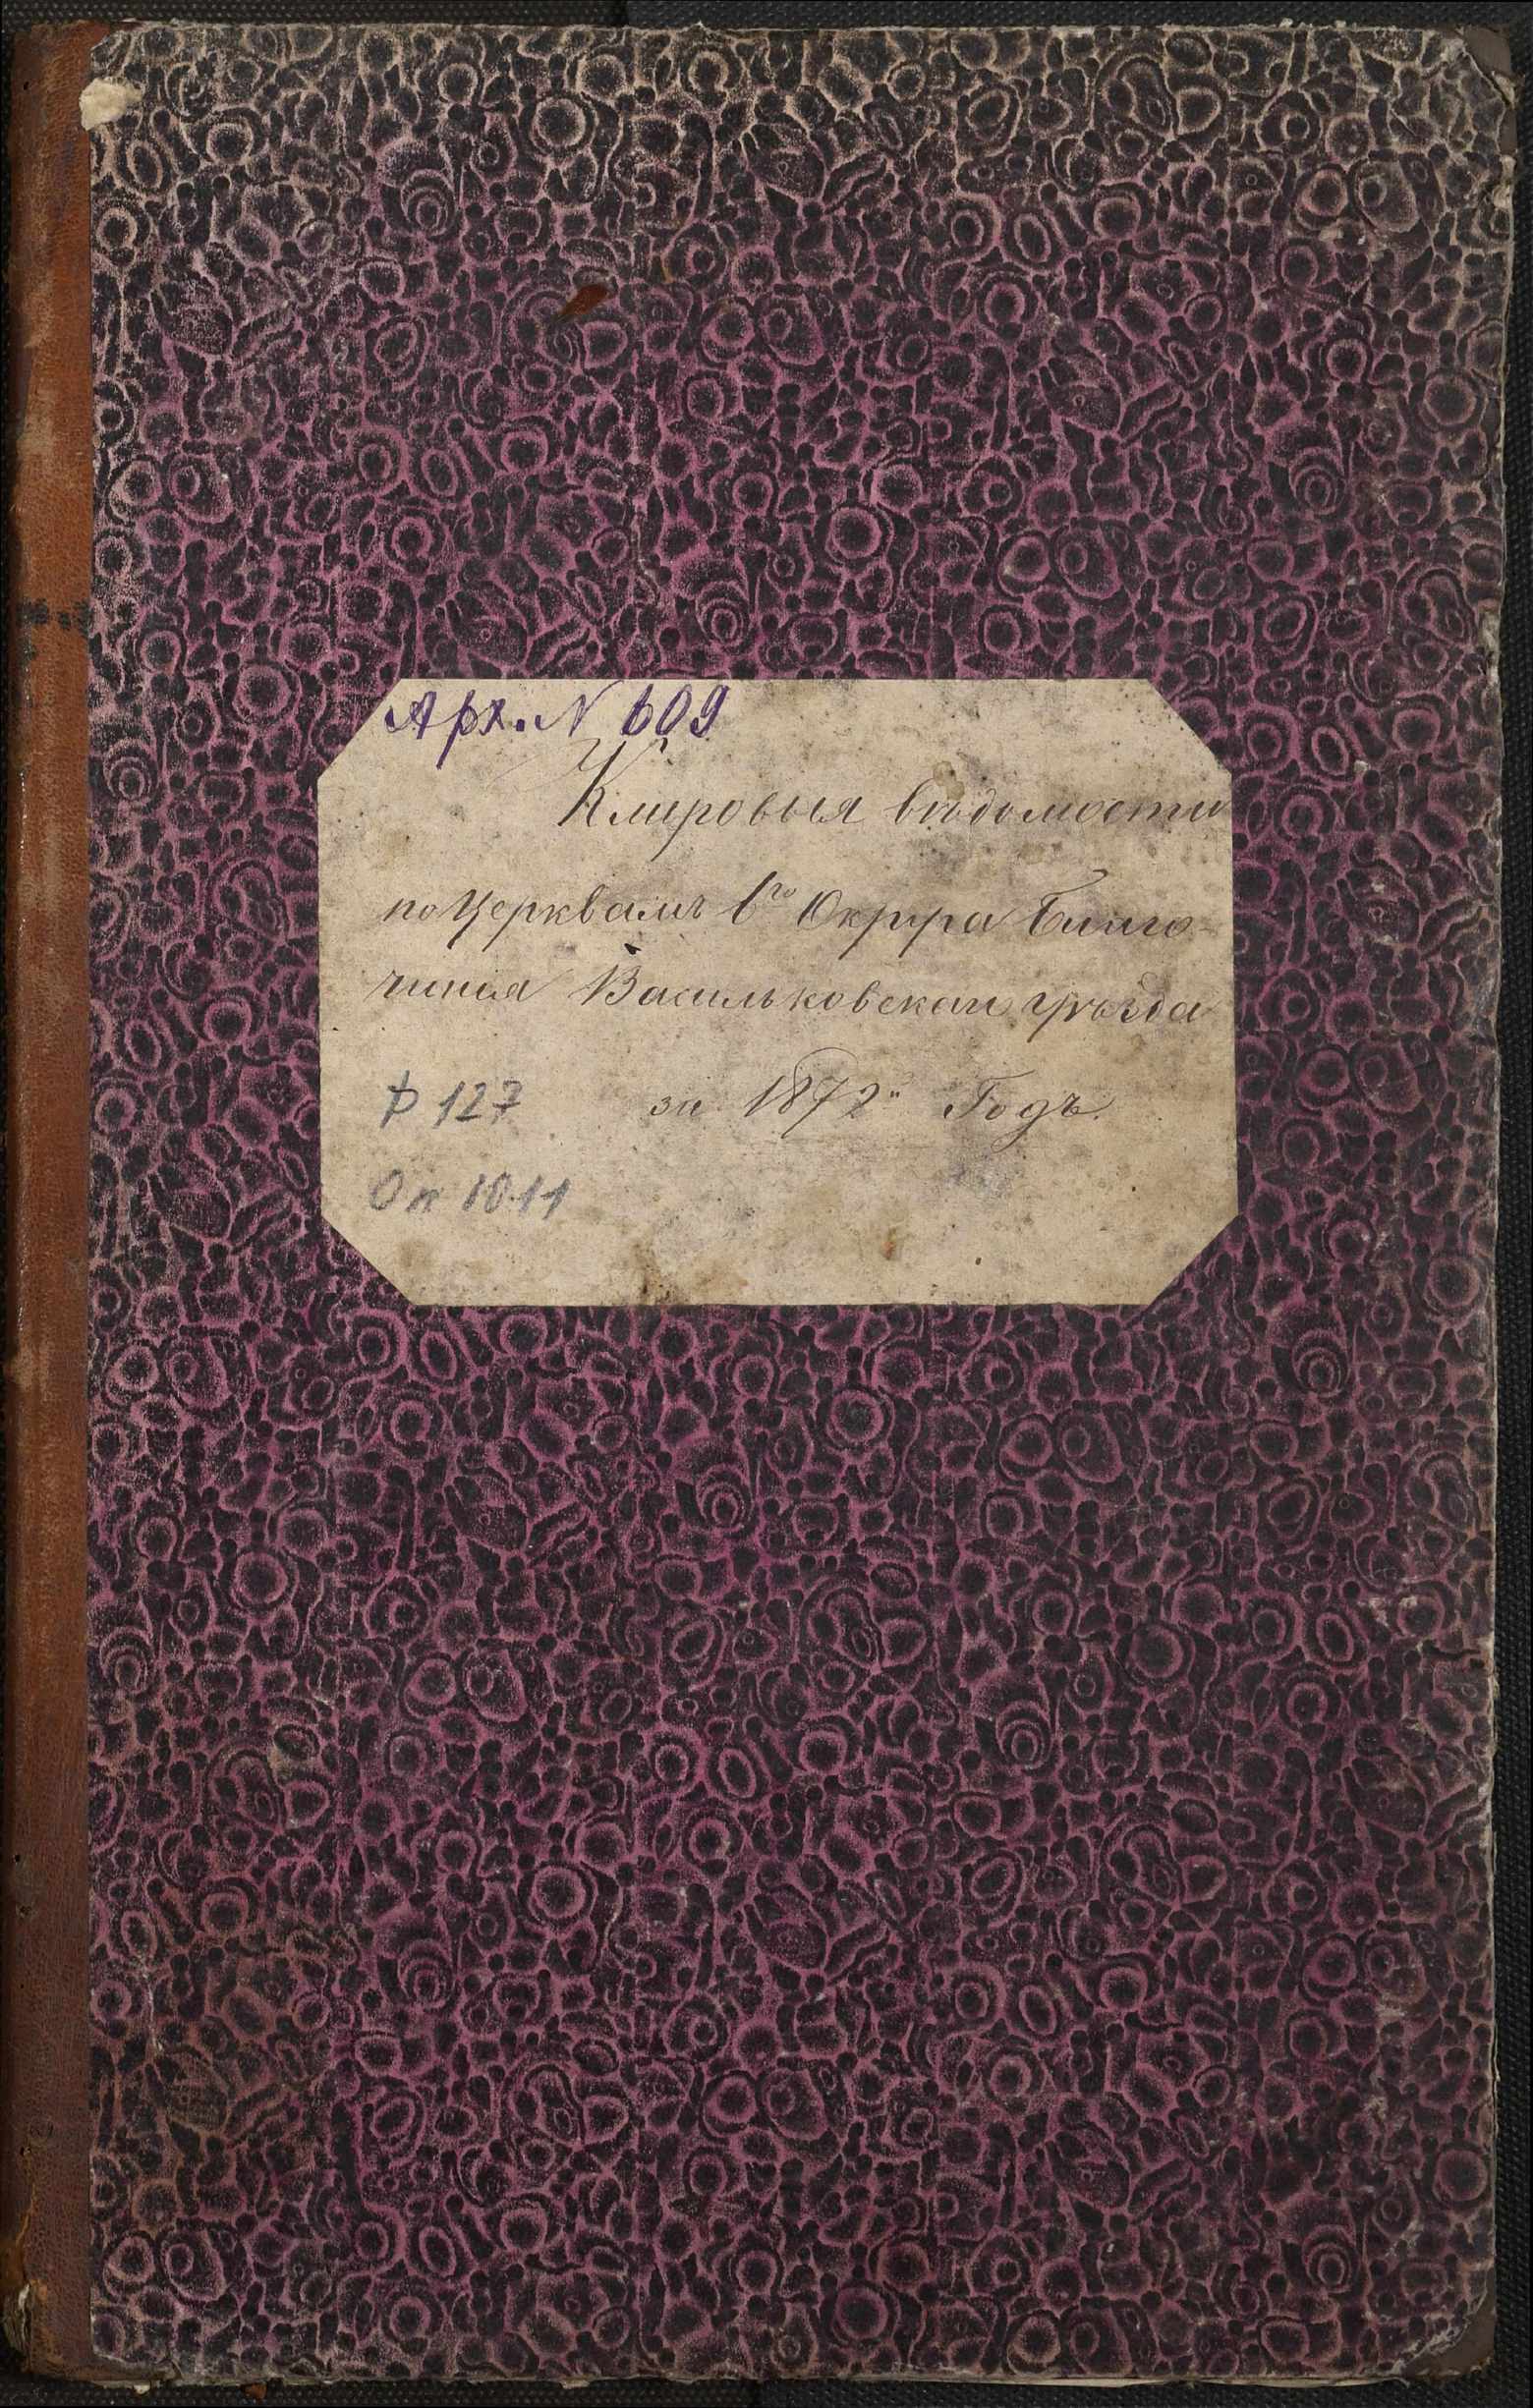 Арх. № 609
Клировыя вѣдомости
по Церквамъ 6го Округа Благо-
чинія Васильковскаго уѣзда
за 1872й Годъ.
Ф 127
Оп 1011